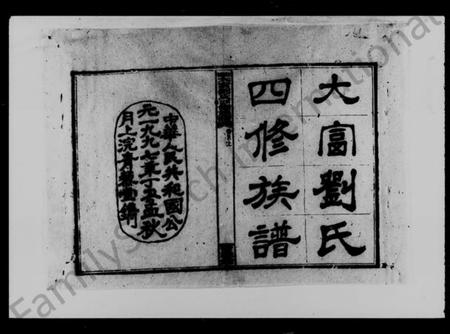 大富劉氏
四修族譜
中華人民共和國公
元一九九七年丁丑孟秋
月上浣青藜堂鐫
FamilySearch International